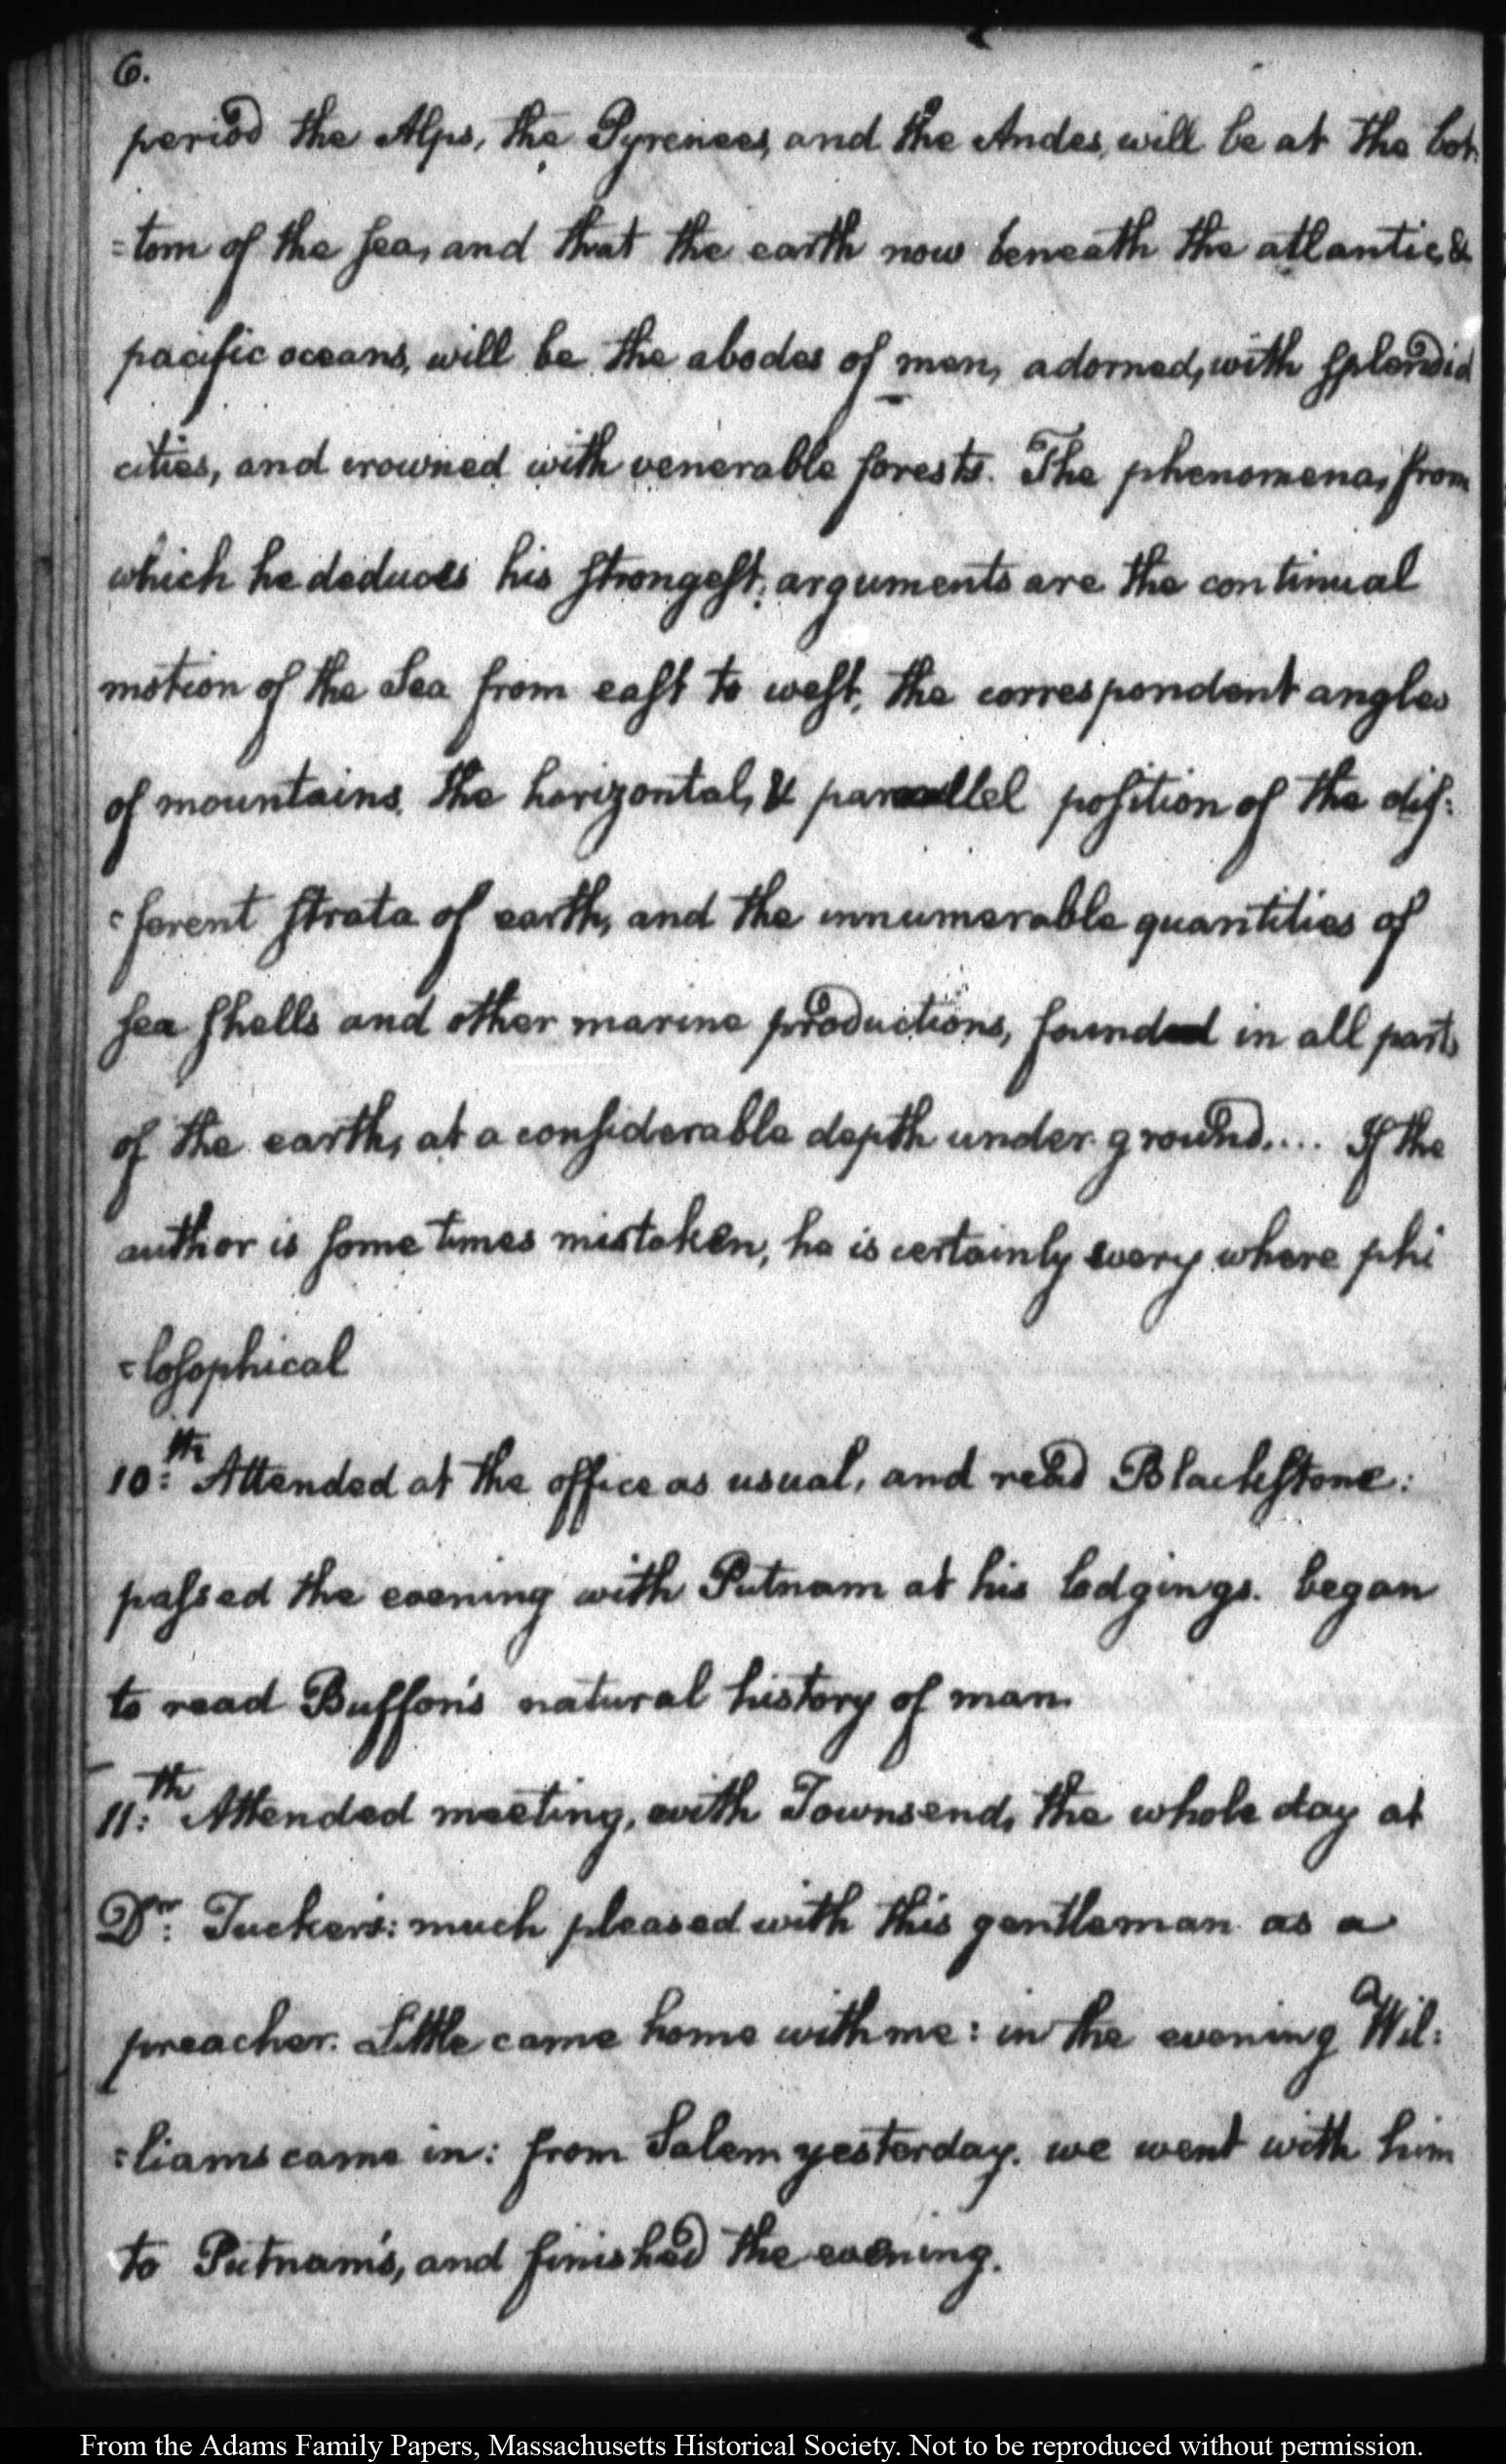 6.
period the Alps, the Pyrenees, and the Andes, will be at the bot
=tom of the sea, and that the earth now beneath the atlantic, &
pacific oceans, will be the abodes of men, adorned, with splendid
cities, and crowned with venerable forests. The phenomena, from
which he deduces his strongest, arguments are the continual
motion of the Sea from east to west, the correspondent angles
of mountains, the horizontal, & parallel position of the dif:
=ferent strata of earth, and the innumerable quantities of
sea shells and other marine productions, found in all parts
of the earth, at a considerable depth under ground.... If the
author is some times mistaken, he is certainly every where phi
=losophical
10:th Attended at the office as usual, and read Blackstone:
passed the evening with Putnam at his lodgings. began
to read Buffon's natural history of man.
11:th Attended meeting, with Townsend, the whole day at
Dr: Tucker's: much pleased with this gentleman as a
preacher. Little came home with me: in the evening Wil:
=liams came in: from Salem yesterday. we went with him
to Putnam's, and finished the evening.
From the Adams Family Papers, Massachusetts Historical Society. Not to be reproduced without permission.